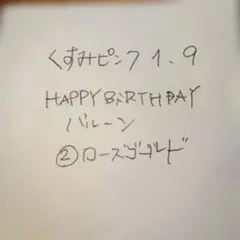 くすみピンク 1、9
HAPPY BiRTHDAY
バルーン
②ローズゴールド